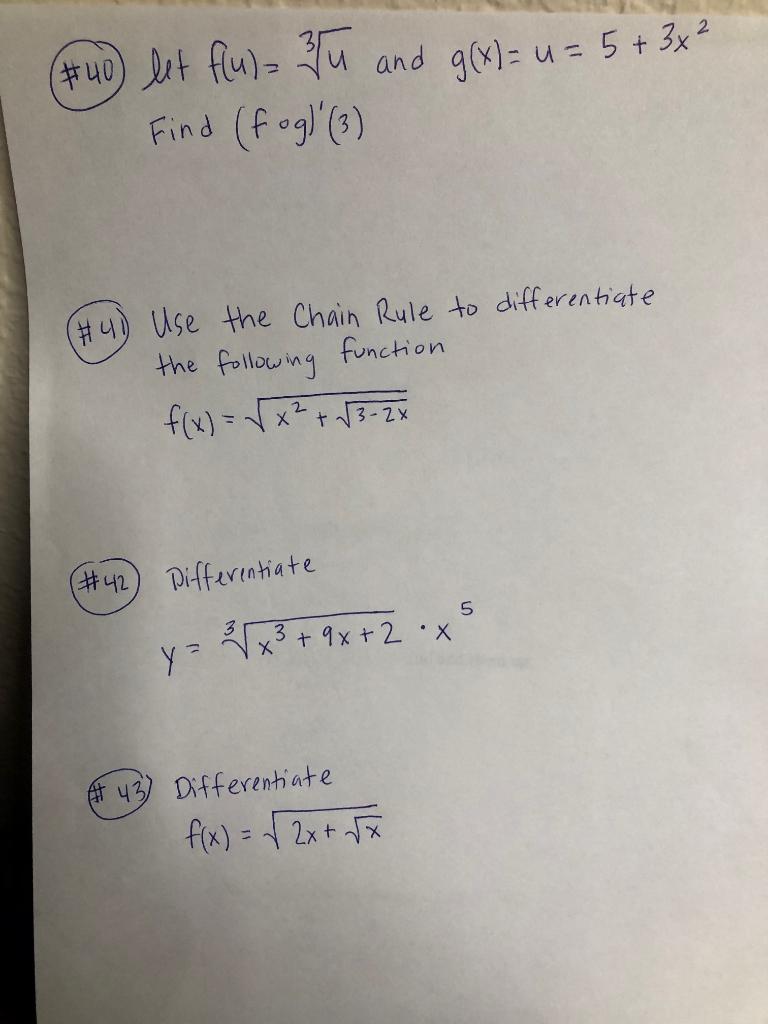 #40 let f(u) = ∛u and g(x) = u = 5 + 3x²
Find (f∘g)'(3)
#41 Use the Chain Rule to differentiate
the following function
f(x) = √(x² + √(3-2x))
#42 Differentiate
y = ∛(x³ + 9x + 2) · x⁵
#43 Differentiate
f(x) = √(2x + √x)